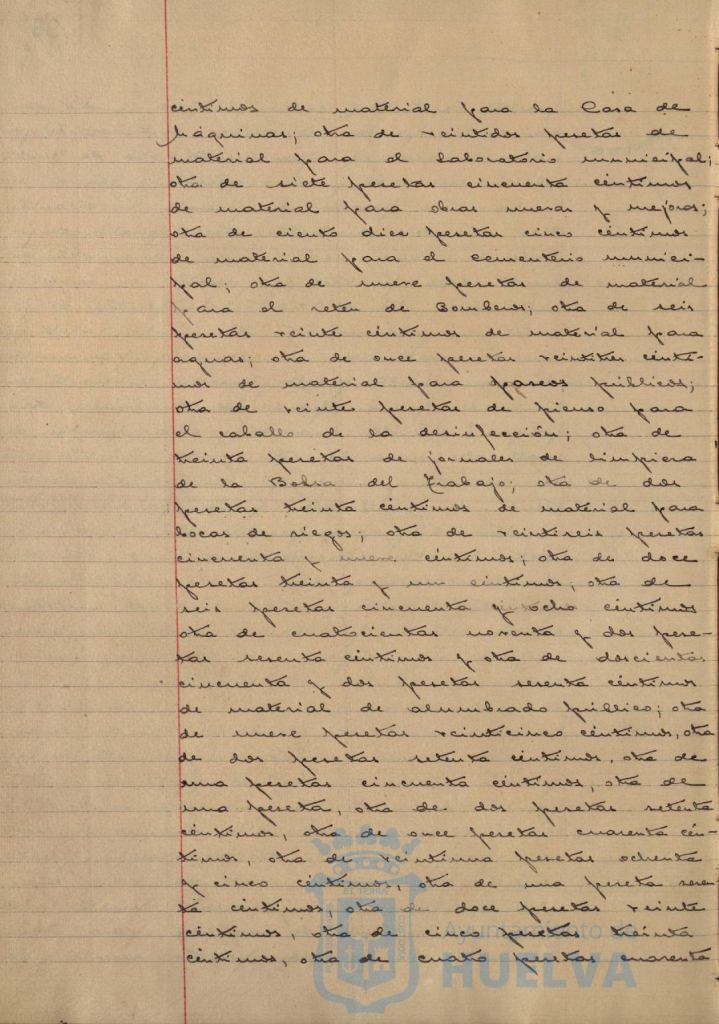 céntimos de material para la Casa de
Máquinas; otra de veintidos pesetas de
material para el Laboratorio municipal;
otra de siete pesetas cincuenta céntimos
de material para obras nuevas y mejoras;
otra de ciento diez pesetas cinco céntimos
de material para el cementerio munici-
pal; otra de nueve pesetas de material
para el retén de Bomberos; otra de seis
pesetas veinte céntimos de material para
aguas; otra de once pesetas veintitres cénti-
mos de material para paseos públicos;
otra de veinte pesetas de pienso para
el caballo de la desinfección; otra de
treinta pesetas de jornales de limpieza
de la Bolsa del Trabajo; otra de dos
pesetas treinta céntimos de material para
bocas de riegos; otra de veintiseis pesetas
cincuenta y nueve céntimos; otra de doce
pesetas treinta y un céntimos, otra de
seis pesetas cincuenta y ocho céntimos
otra de cuatrocientas noventa y dos pese-
tas sesenta céntimos y otra de doscientas
cincuenta y dos pesetas sesenta céntimos
de material de alumbrado público; otra
de nueve pesetas veinticinco céntimos, otra
de dos pesetas setenta céntimos, otra de
una pesetas cincuenta céntimos, otra de
una peseta, otra de dos pesetas setenta
céntimos, otra de once pesetas cuarenta cén-
timos, otra de veintiuna pesetas ochenta
y cinco céntimos, otra de una peseta sesen-
ta céntimos, otra de doce pesetas veinte
céntimos, otra de cinco pesetas treinta
céntimos, otra de cuatro pesetas cuarenta
Ayuntamiento de
HUELVA